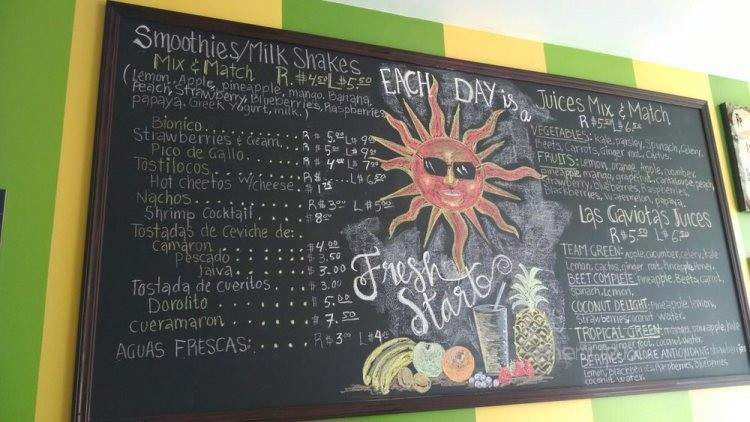 Smoothies/Milk Shakes
Mix & Match R. $4.50 L $5.50
(Lemon, Apple, pineapple, mango, Banana,
Peach, Strawberry, Blueberries, Raspberries
papaya, Greek Yogurt, milk.)
Bionico R $ 5.00 L $ 9.00
Strawberries & cream. R $ 5.00 L $ 9
Pico de Gallo R $ 4.00 L $ 7
Tostilocos R $ L $ 6.50
Hot Cheetos w/cheese $
Nachos R $ 3.00 L $ 5.00
Shrimp Cocktail $ 8.00
Tostadas de Ceviche de:
Camaron $ 4.00
Pescado $ 3.50
Jaiva $ 3.00
Tostada de cueritos $ 3.00
Dorolito $ 5.00
Cueramaron $ 7.50
AGUAS FRESCAS: R $ 3.00 L $ 4.00
EACH DAY is a
Fresh
Start
Juices Mix & Match
R $ 5.50 L $ 6.50
VEGETABLES: kale, parsley, Spinach, Celery,
Beets, Carrots, ginger root, Cactus.
FRUITS: Lemon, orange, Apple, cucumber,
pineapple, mango, grapefruit, Cantaloupe, peach,
Strawberry, blueberries, Raspberries,
Blackberries, Watermelon, papaya,
Las Gaviotas Juices
R $ 5.50 L $ 6.50
TEAM GREEN: Apple, cucumber, celery, kale
Lemon, cactus, ginger root, Pineapple,
BEET COMPLETE: Pineapple, Beets, Carrot,
spinach, Lemon.
COCONUT DELIGHT: Pineapple, lemon,
Strawberries, coconut water.
TROPICAL GREEN: mangos, pineapple, kale
ginger root, coconut water
BERRIES/GALORE ANTIOXIDANT: Strawberries
Lemon, blackberries, Raspberries, Blueberries
coconut water.